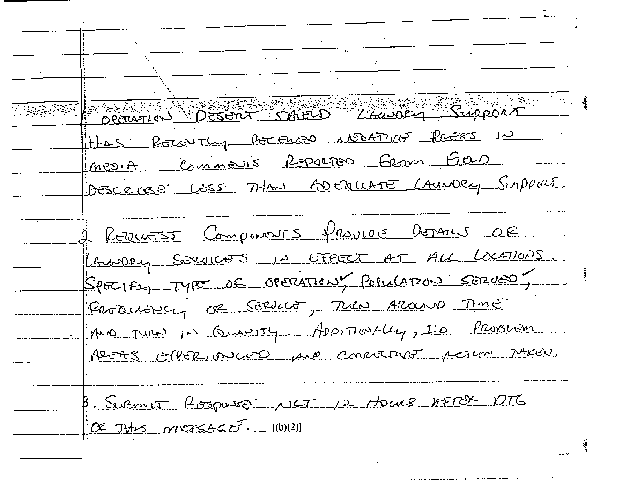 1 OPERATION DESERT SHIELD LAUNDRY SUPPORT
HAS RECENTLY RECEIVED NEGATIVE PRESS IN
MEDIA. COMMENTS REPORTED FROM FIELD
DESCRIBE LESS THAN ADEQUATE LAUNDRY SUPPORT.
2. REQUEST COMPONENTS PROVIDE DETAILS OF
LAUNDRY SERVICES IN EFFECT AT ALL LOCATIONS.
SPECIFY TYPE OF OPERATION, POPULATION SERVED,
FREQUENCY OF SERVICE, TURN AROUND TIME
AND TURN IN QUANTITY. ADDITIONALLY, I.D. PROBLEM
AREAS EXPERIENCED AND CORRECTIVE ACTION TAKEN.
3. SUBMIT RESPONSE NLT 12 HOURS AFTER DTG
OF THIS MESSAGE. [(b)(2)]